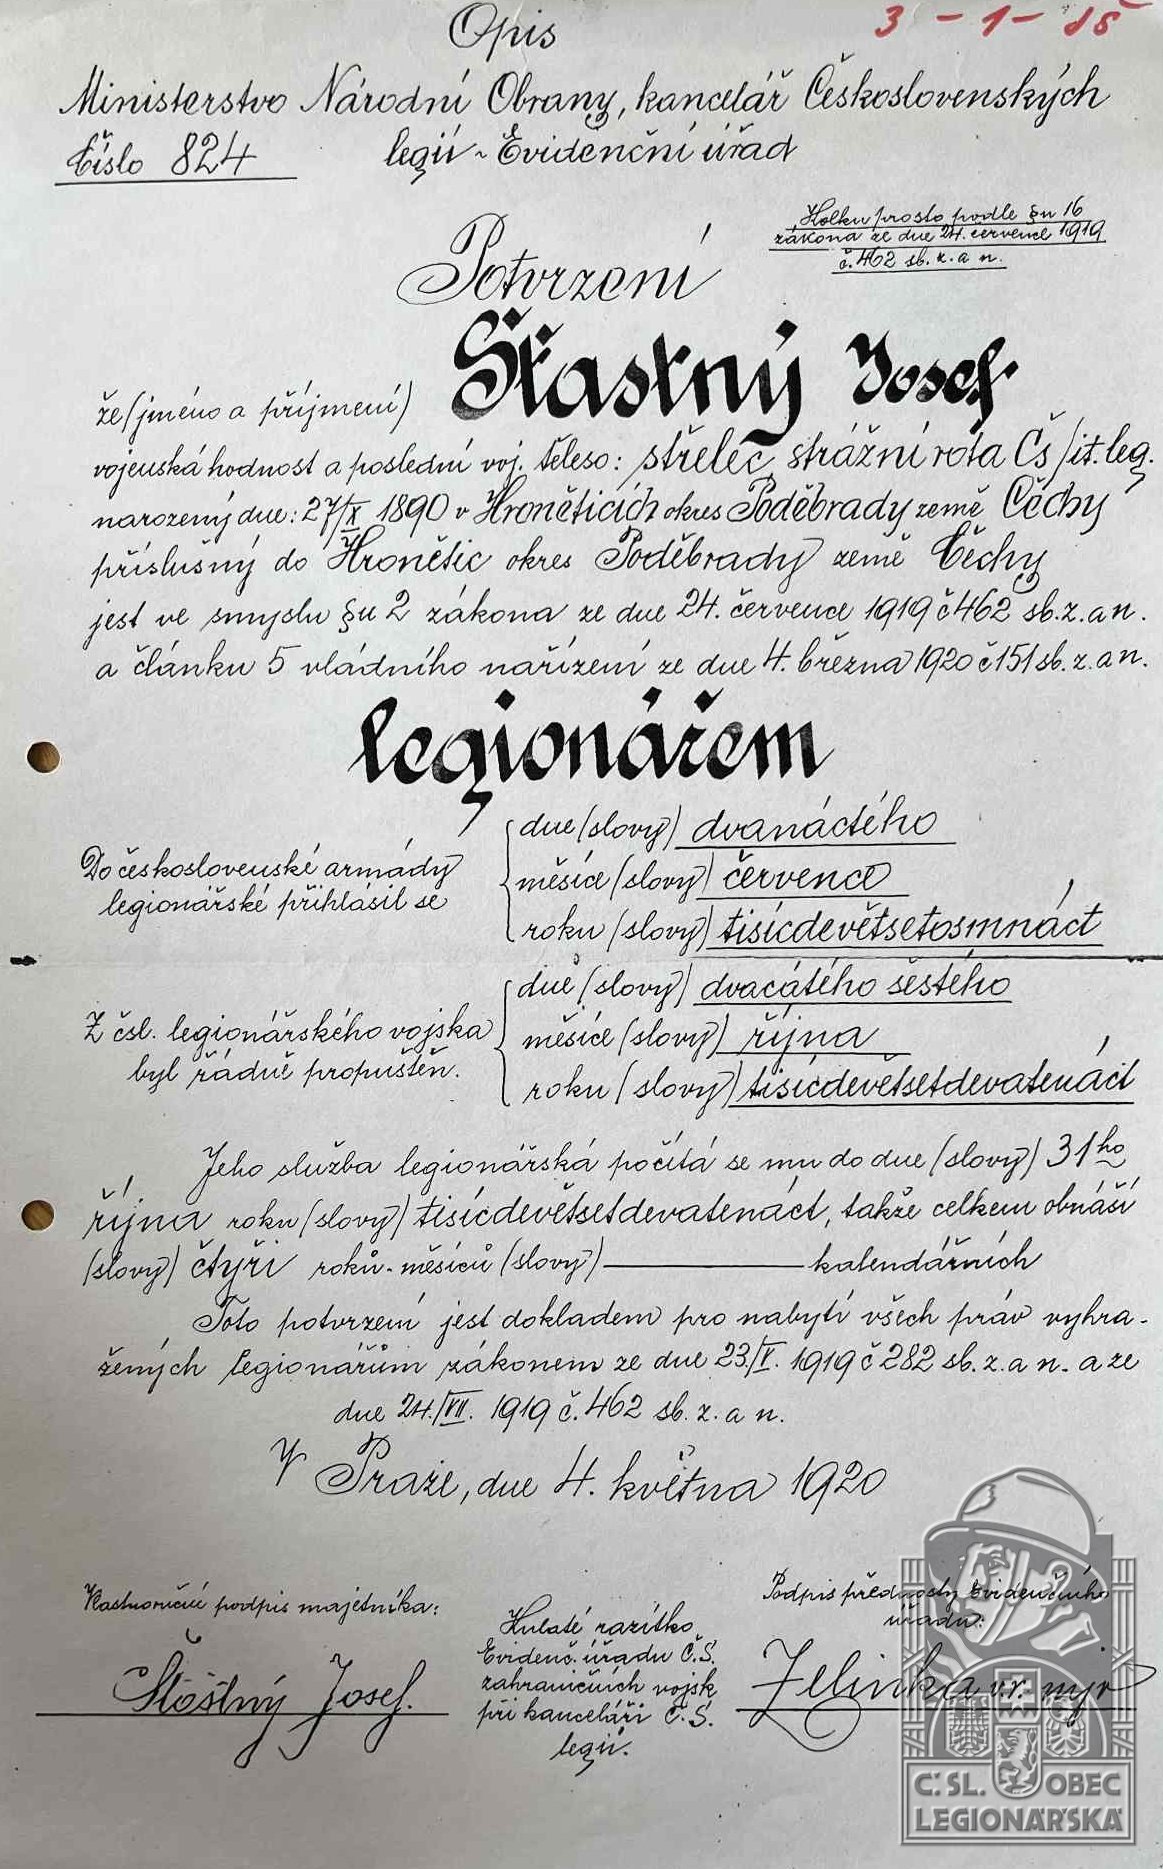 Opis
3 - 1 - 15
Ministerstvo Národní Obrany, kancelář Československých
legií - Evidenční úřad
Číslo 824
Kolku prosto podle §u 16
zákona ze dne 24. července 1919
č. 462 sb. z. a n.
Potvrzení
že (jméno a příjmení) Šťastný Josef.
vojenská hodnost a poslední voj. těleso: střelec, strážní rota Čs/it. leg.
narozený dne: 27/X 1890 v Hroněticích okres Poděbrady země Čechy
příslušný do Hronětic okres Poděbrady země Čechy
jest ve smyslu §u 2 zákona ze dne 24. července 1919 č 462 sb. z. a n.
a článku 5 vládního nařízení ze dne 4. března 1920 č 151 sb. z. a n.
legionářem
Do československé armády
legionářské přihlásil se
dne (slovy) dvanáctého
měsíce (slovy) července
roku (slovy) tisícdevětsetosmnáct
Z čsl. legionářského vojska
byl řádně propuštěn.
dne (slovy) dvacátého šestého
měsíce (slovy) října
roku (slovy) tisícdevětsetdevatenáct
Jeho služba legionářská počítá se mu do dne (slovy) 31ho
října roku (slovy) tisícdevětsetdevatenáct, takže celkem obnáší
(slovy) čtyři roků - měsíců (slovy) ——— kalendářních
Toto potvrzení jest dokladem pro nabytí všech práv vyhra-
žených legionářům zákonem ze dne 23./V. 1919 č 282 sb. z. a n. a ze
dne 24./VII. 1919 č. 462 sb. z. a n.
V Praze, dne 4. května 1920
Vlastnoruční podpis majetníka:
Šťastný Josef.
Kulaté razítko
Evidenč. úřadu Č.S.
zahraničních vojsk
při kanceláři Č.S.
legií.
Podpis přednosty Evidenčního
úřadu:
Zelinka v.r. mjr
Č. SL. OBEC
LEGIONÁŘSKÁ